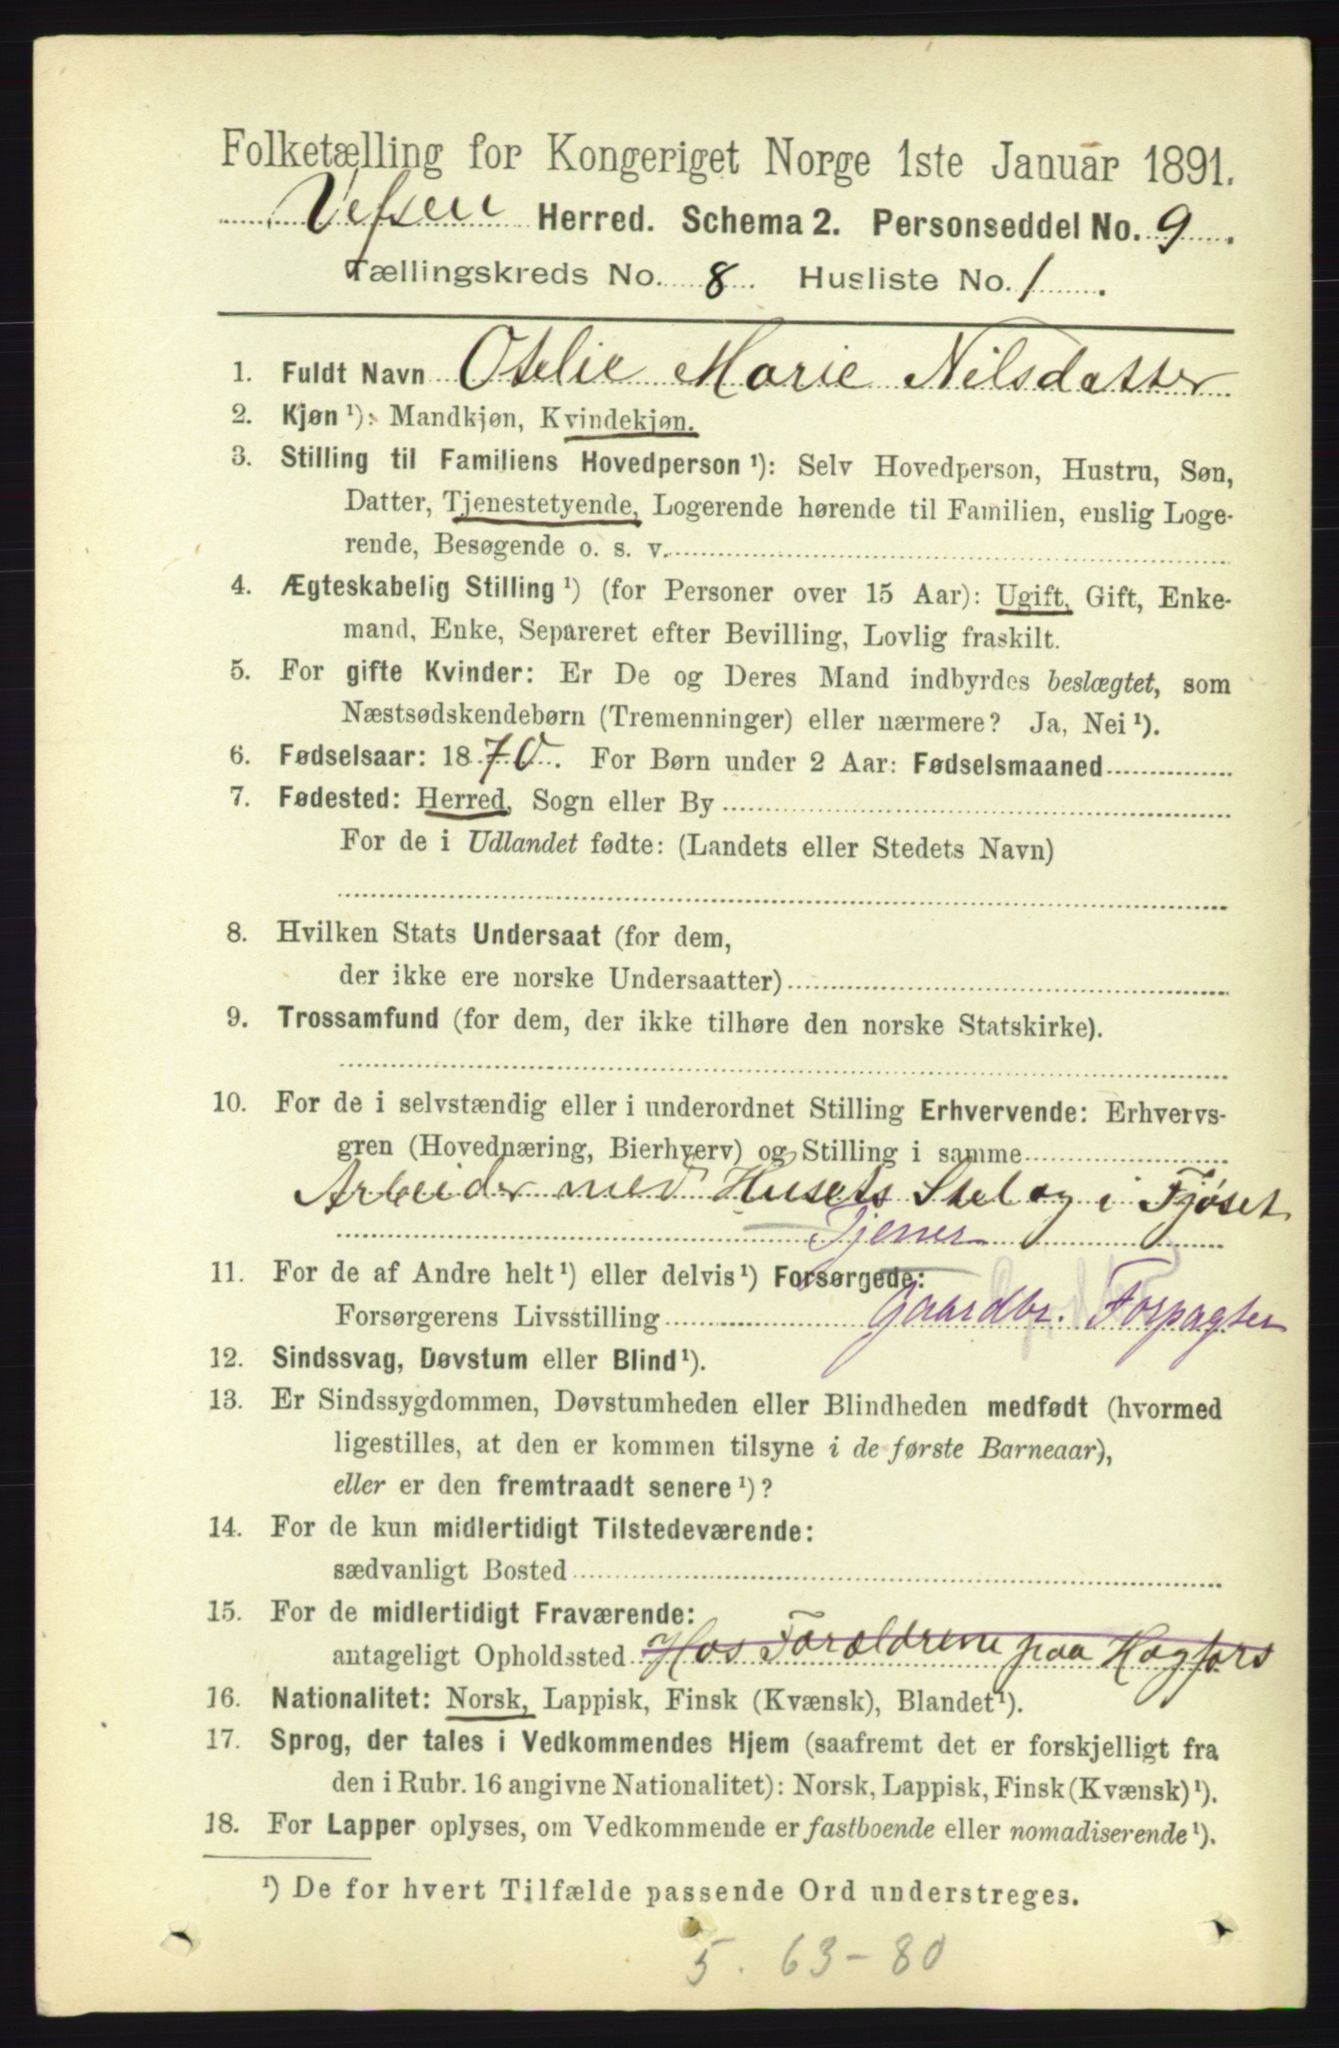 Folketælling for Kongeriget Norge 1ste Januar 1891.
Vefsen Herred. Schema 2. Personseddel No. 9.
Tællingskreds No. 8. Husliste No. 1.
1. Fuldt Navn Otelie Marie Nilsdatter
2. Kjøn ¹): Mandkjøn, Kvindekjøn.
3. Stilling til Familiens Hovedperson ¹): Selv Hovedperson, Hustru, Søn,
Datter, Tjenestetyende, Logerende hørende til Familien, enslig Loge-
rende, Besøgende o. s. v.
4. Ægteskabelig Stilling ¹) (for Personer over 15 Aar): Ugift, Gift, Enke-
mand, Enke, Separeret efter Bevilling, Lovlig fraskilt.
5. For gifte Kvinder: Er De og Deres Mand indbyrdes beslægtet, som
Næstsødskendebørn (Tremenninger) eller nærmere? Ja, Nei ¹).
6. Fødselsaar: 1870. For Børn under 2 Aar: Fødselsmaaned
7. Fødested: Herred, Sogn eller By
For de i Udlandet fødte: (Landets eller Stedets Navn)
8. Hvilken Stats Undersaat (for dem,
der ikke ere norske Undersaatter)
9. Trossamfund (for dem, der ikke tilhøre den norske Statskirke).
10. For de i selvstændig eller i underordnet Stilling Erhvervende: Erhvervs-
gren (Hovednæring, Bierhverv) og Stilling i samme
Arbeider med Husets Stel og i Fjøset
Tjener
11. For de af Andre helt ¹) eller delvis ¹) Forsørgede:
Forsørgerens Livsstilling Gaardbr. Forpagter
12. Sindssvag, Døvstum eller Blind ¹).
13. Er Sindssygdommen, Døvstumheden eller Blindheden medfødt (hvormed
ligestilles, at den er kommen tilsyne i de første Barneaar),
eller er den fremtraadt senere ¹)?
14. For de kun midlertidigt Tilstedeværende:
sædvanligt Bosted
15. For de midlertidigt Fraværende:
antageligt Opholdssted Hos Forældrene paa Hagfors
16. Nationalitet: Norsk, Lappisk, Finsk (Kvænsk), Blandet ¹).
17. Sprog, der tales i Vedkommendes Hjem (saafremt det er forskjelligt fra
den i Rubr. 16 angivne Nationalitet): Norsk, Lappisk, Finsk (Kvænsk) ¹).
18. For Lapper oplyses, om Vedkommende er fastboende eller nomadiserende ¹).
¹) De for hvert Tilfælde passende Ord understreges.
5. 63-80